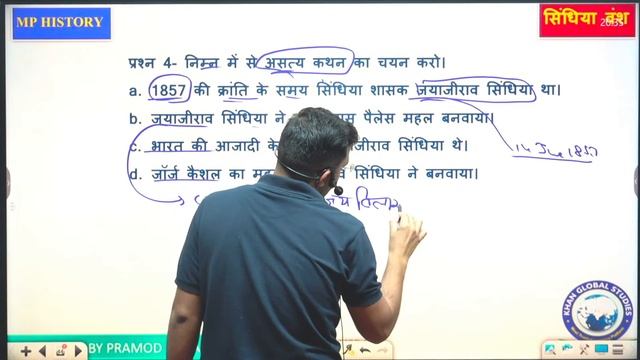 MP HISTORY
सिंधिया वंश
प्रश्न 4- निम्न में से असत्य कथन का चयन करो।
a. 1857 की क्रांति के समय सिंधिया शासक जयाजीराव सिंधिया था।
b. जयाजीराव सिंधिया ने पैलेस महल बनवाया।
c. भारत की आजादी के सिंधिया थे।
d. जॉर्ज कैशल का सिंधिया ने बनवाया।
1857
KHAN GLOBAL STUDIES
BY PRAMOD